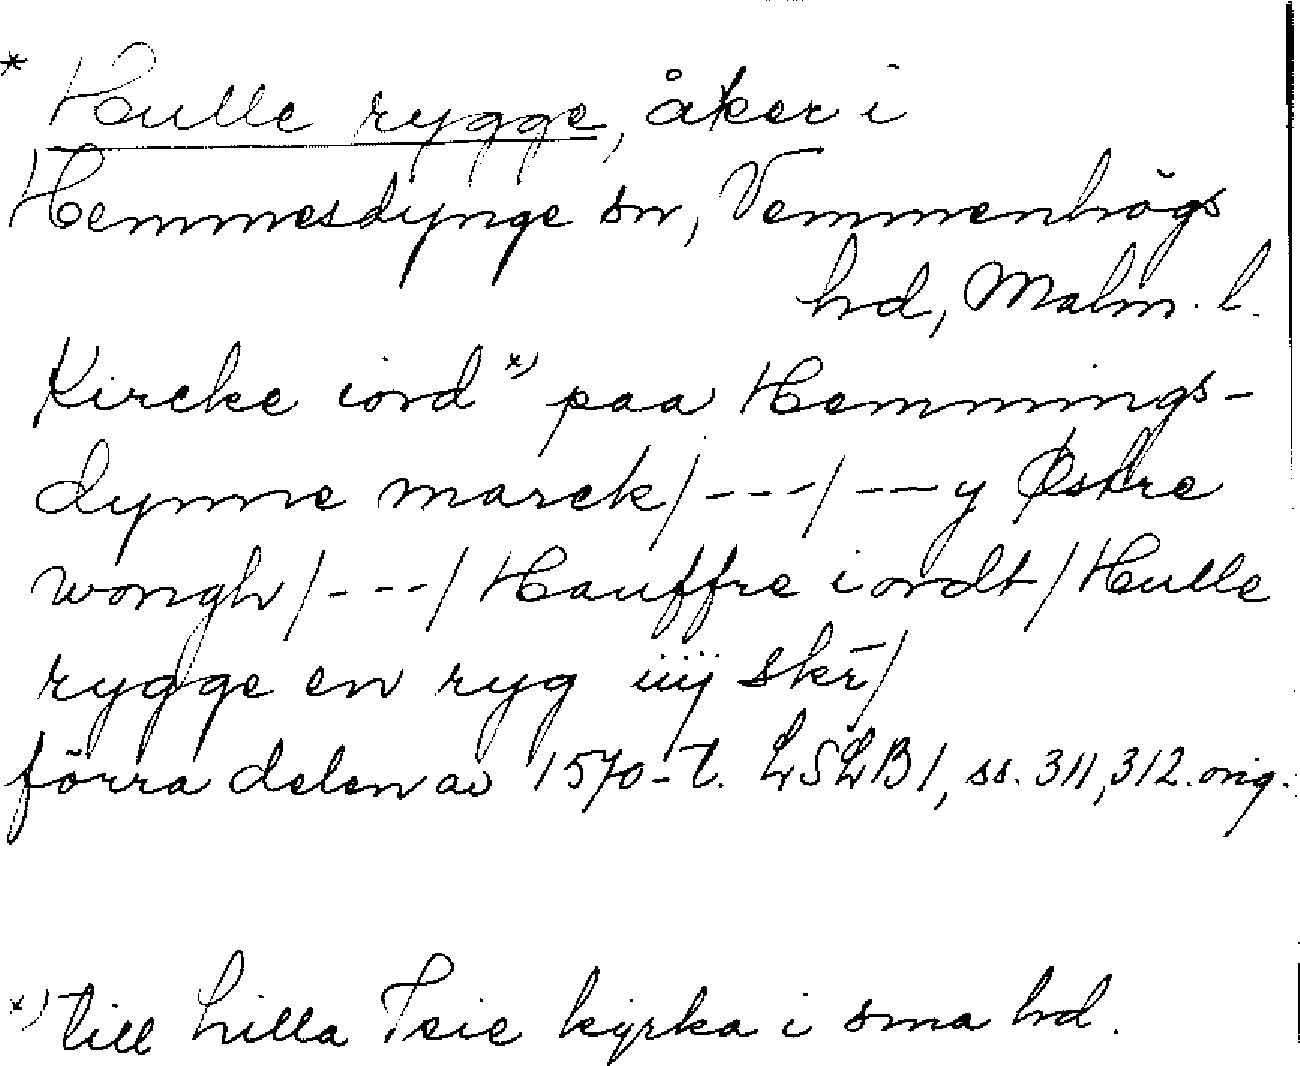 * Hulle rygge, åker i
Hemmesdynge sn, Vemmenhögs
hd, Malm. l.
Kircke iord *) paa Hemmings-
dynne marck/---/---y Østre
wongh/---/Hauffre iordt/Hulle
rygge en ryg iiij skr̄/
förra delen av 1570-t. LSLB1, ss. 311,312. orig.
*) till Lilla Isie kyrka i sma hd.